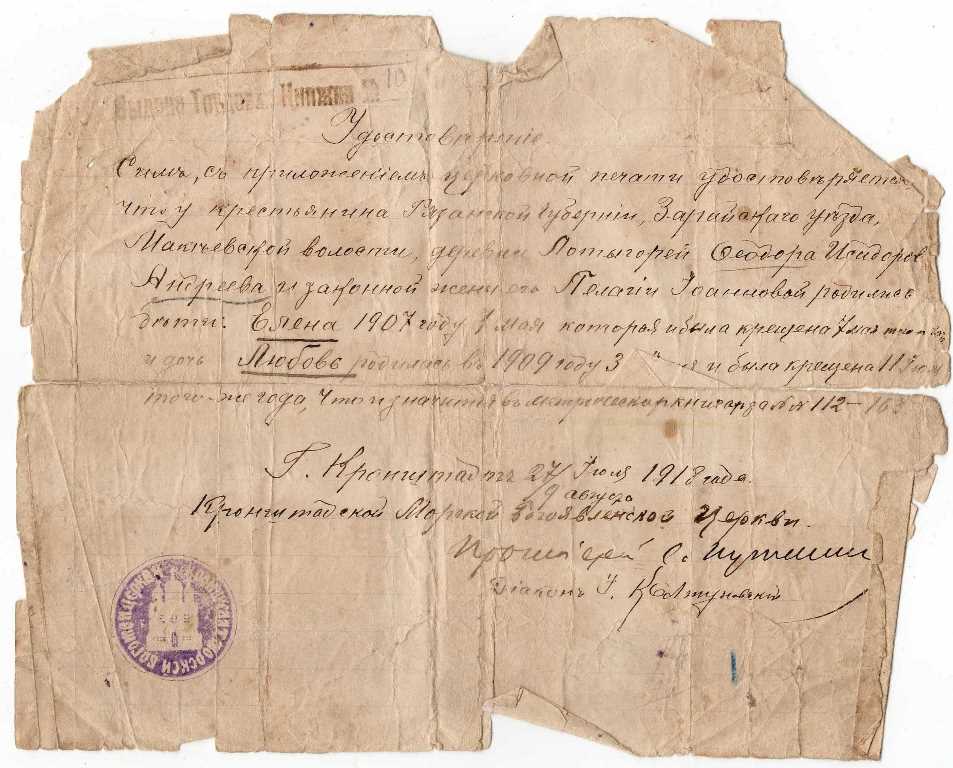 Выдана Хлебная Книжка № 10
Удостовѣреніе.
Симъ, съ приложеніемъ церковной печати удостовѣряется
что у крестьянина Рязанской губерніи, Зарайскаго уѣзда,
Макѣевской волости, деревни Потыгорей Ѳеодора Исидоров
Андреева и законной жены его Пелагіи Іоанновой родились
дѣти: Елена 1907 году 7 мая которая и была крещена 7 мая того
и дочь Любовь родилась въ 1909 году 3 и была крещена 11 Іюля
того-же года, что и значится въ метрической книгѣ за №№ 112-163
Г. Кронштадтъ 27 Іюля 1918 года.
9 августа
Кронштадской Морской Богоявленской Церкви.
Протоіерей С. Путилин
Діаконъ І.